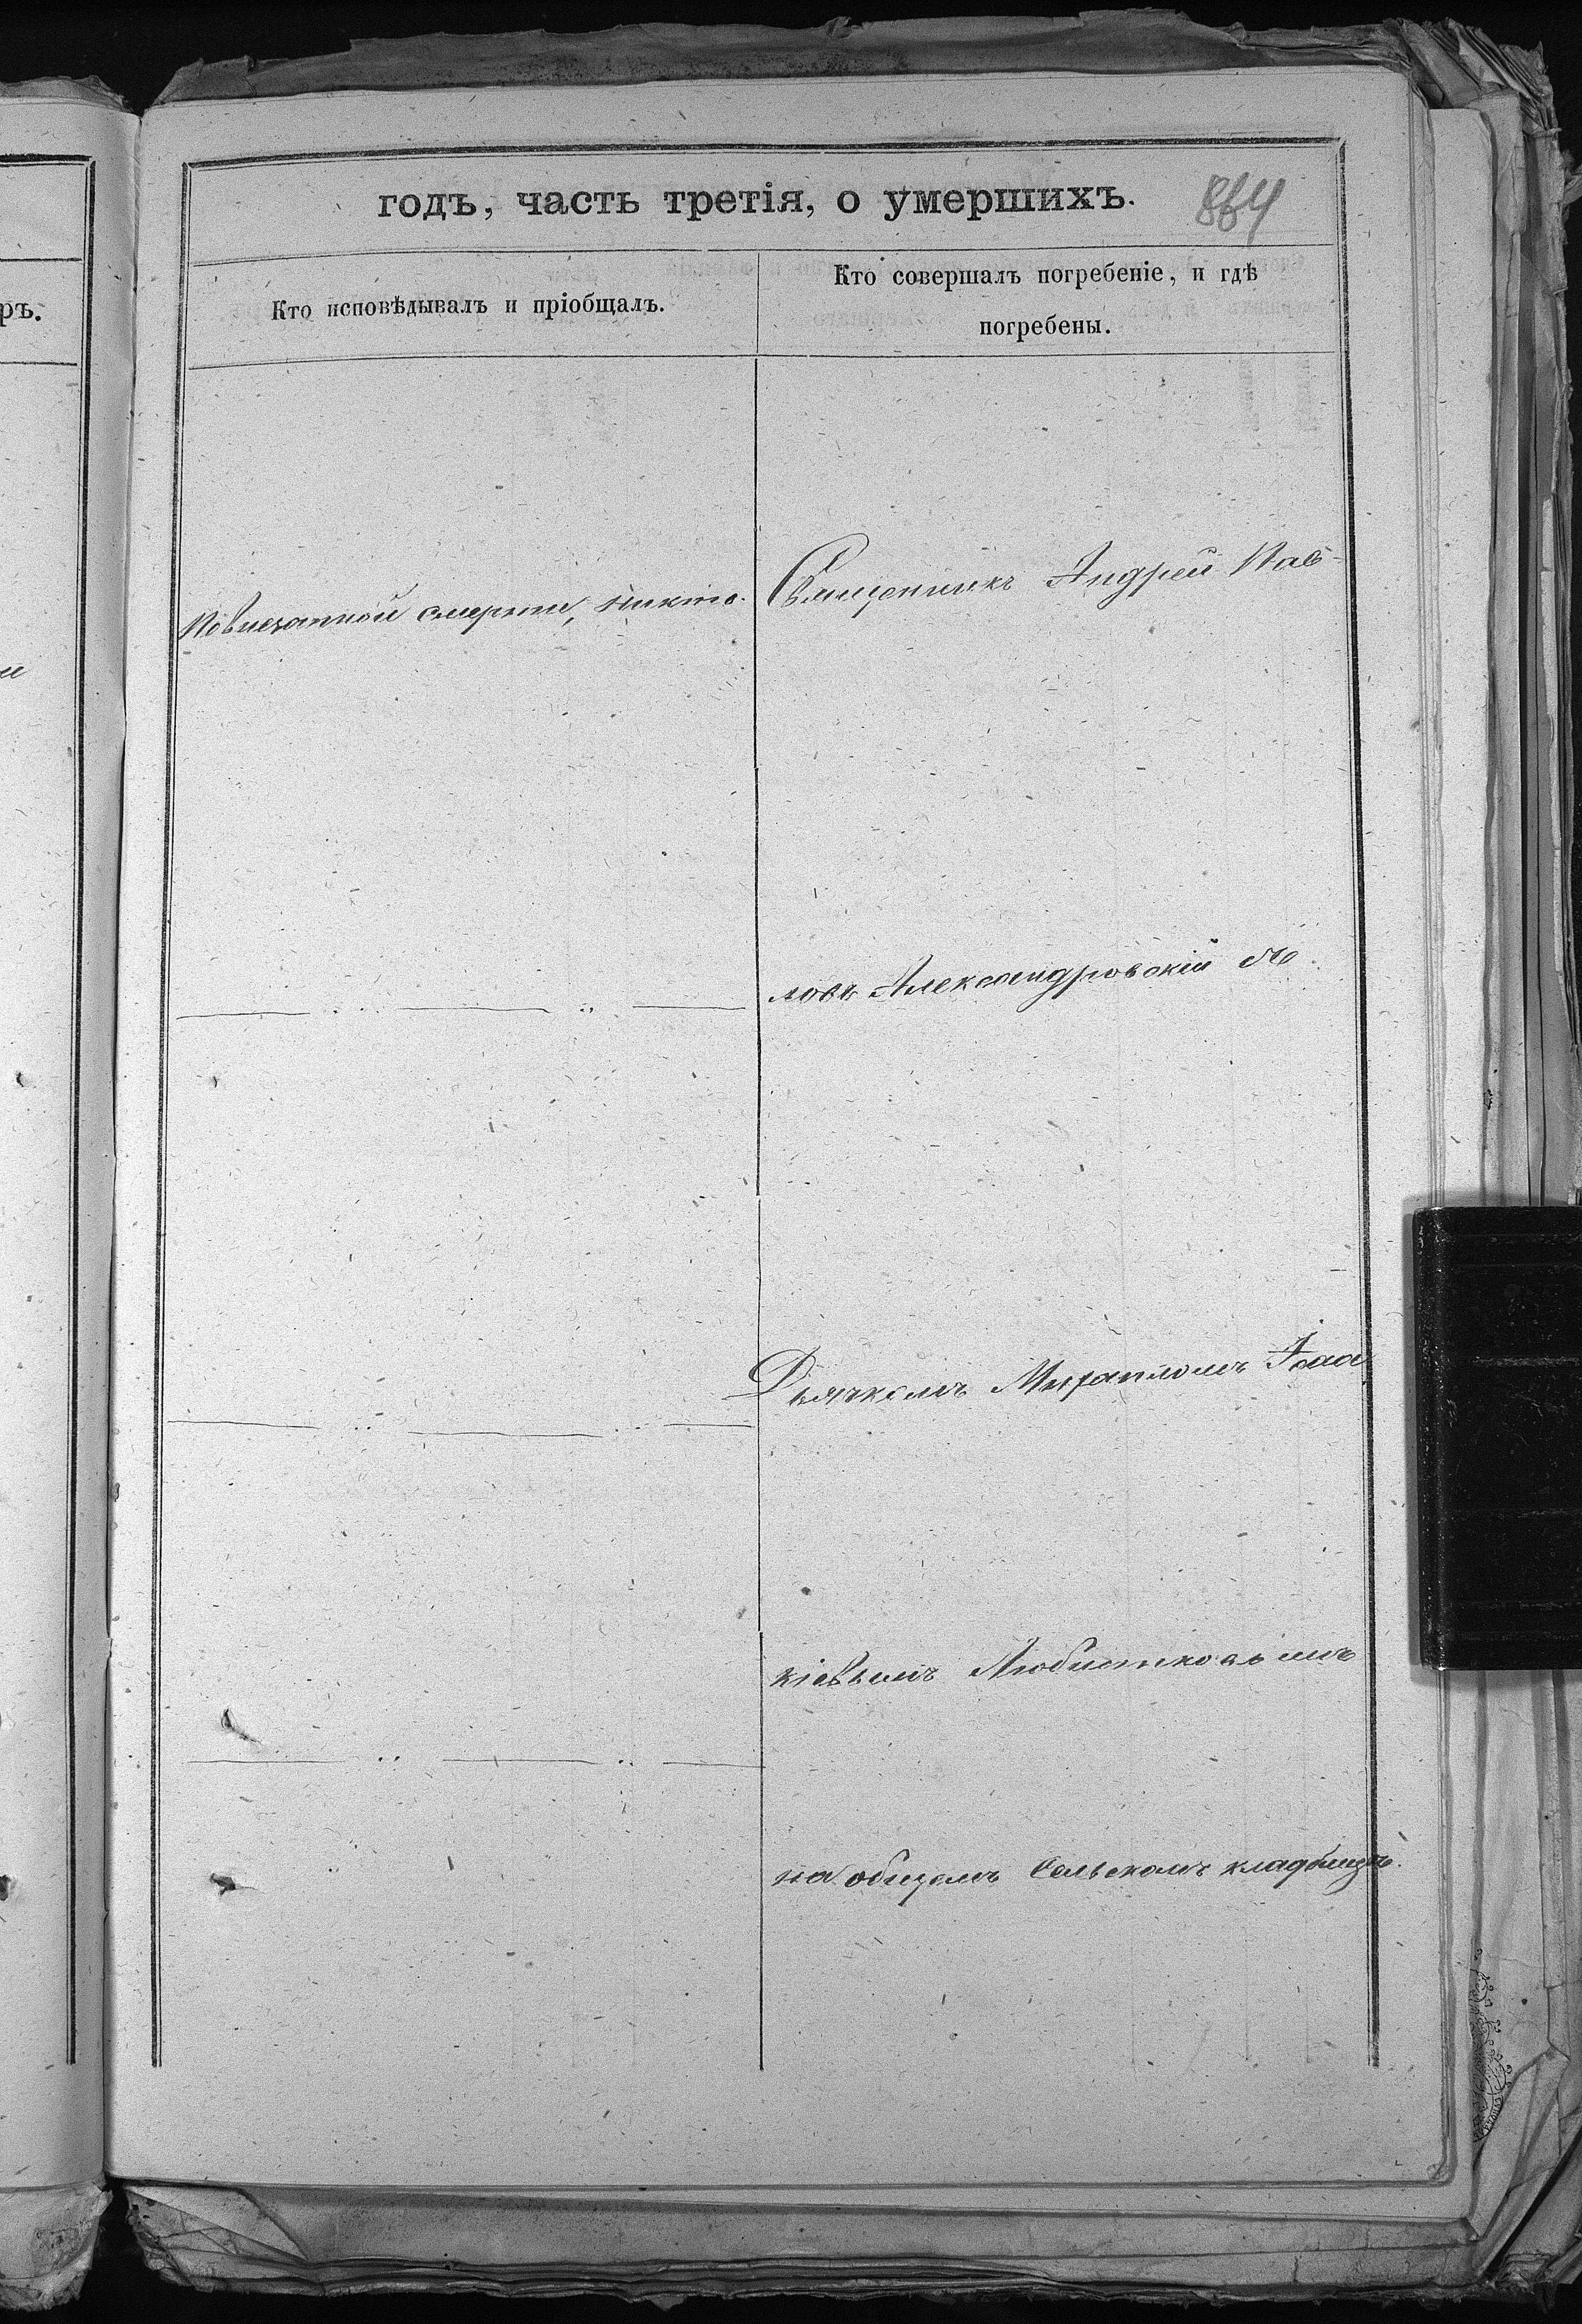 годъ, часть третія, о умершихъ.
864
ръ.
Кто исповѣдывалъ и пріобщалъ.
Кто совершалъ погребеніе, и гдѣ
погребены.
Повнезапной смерти, никто.
Священникъ Андрей Пав-
ловъ Александровскій съ
Дьячкомъ Михаиломъ Исаа
кіевымъ Любистковымъ
на общемъ Сельскомъ кладбищѣ.